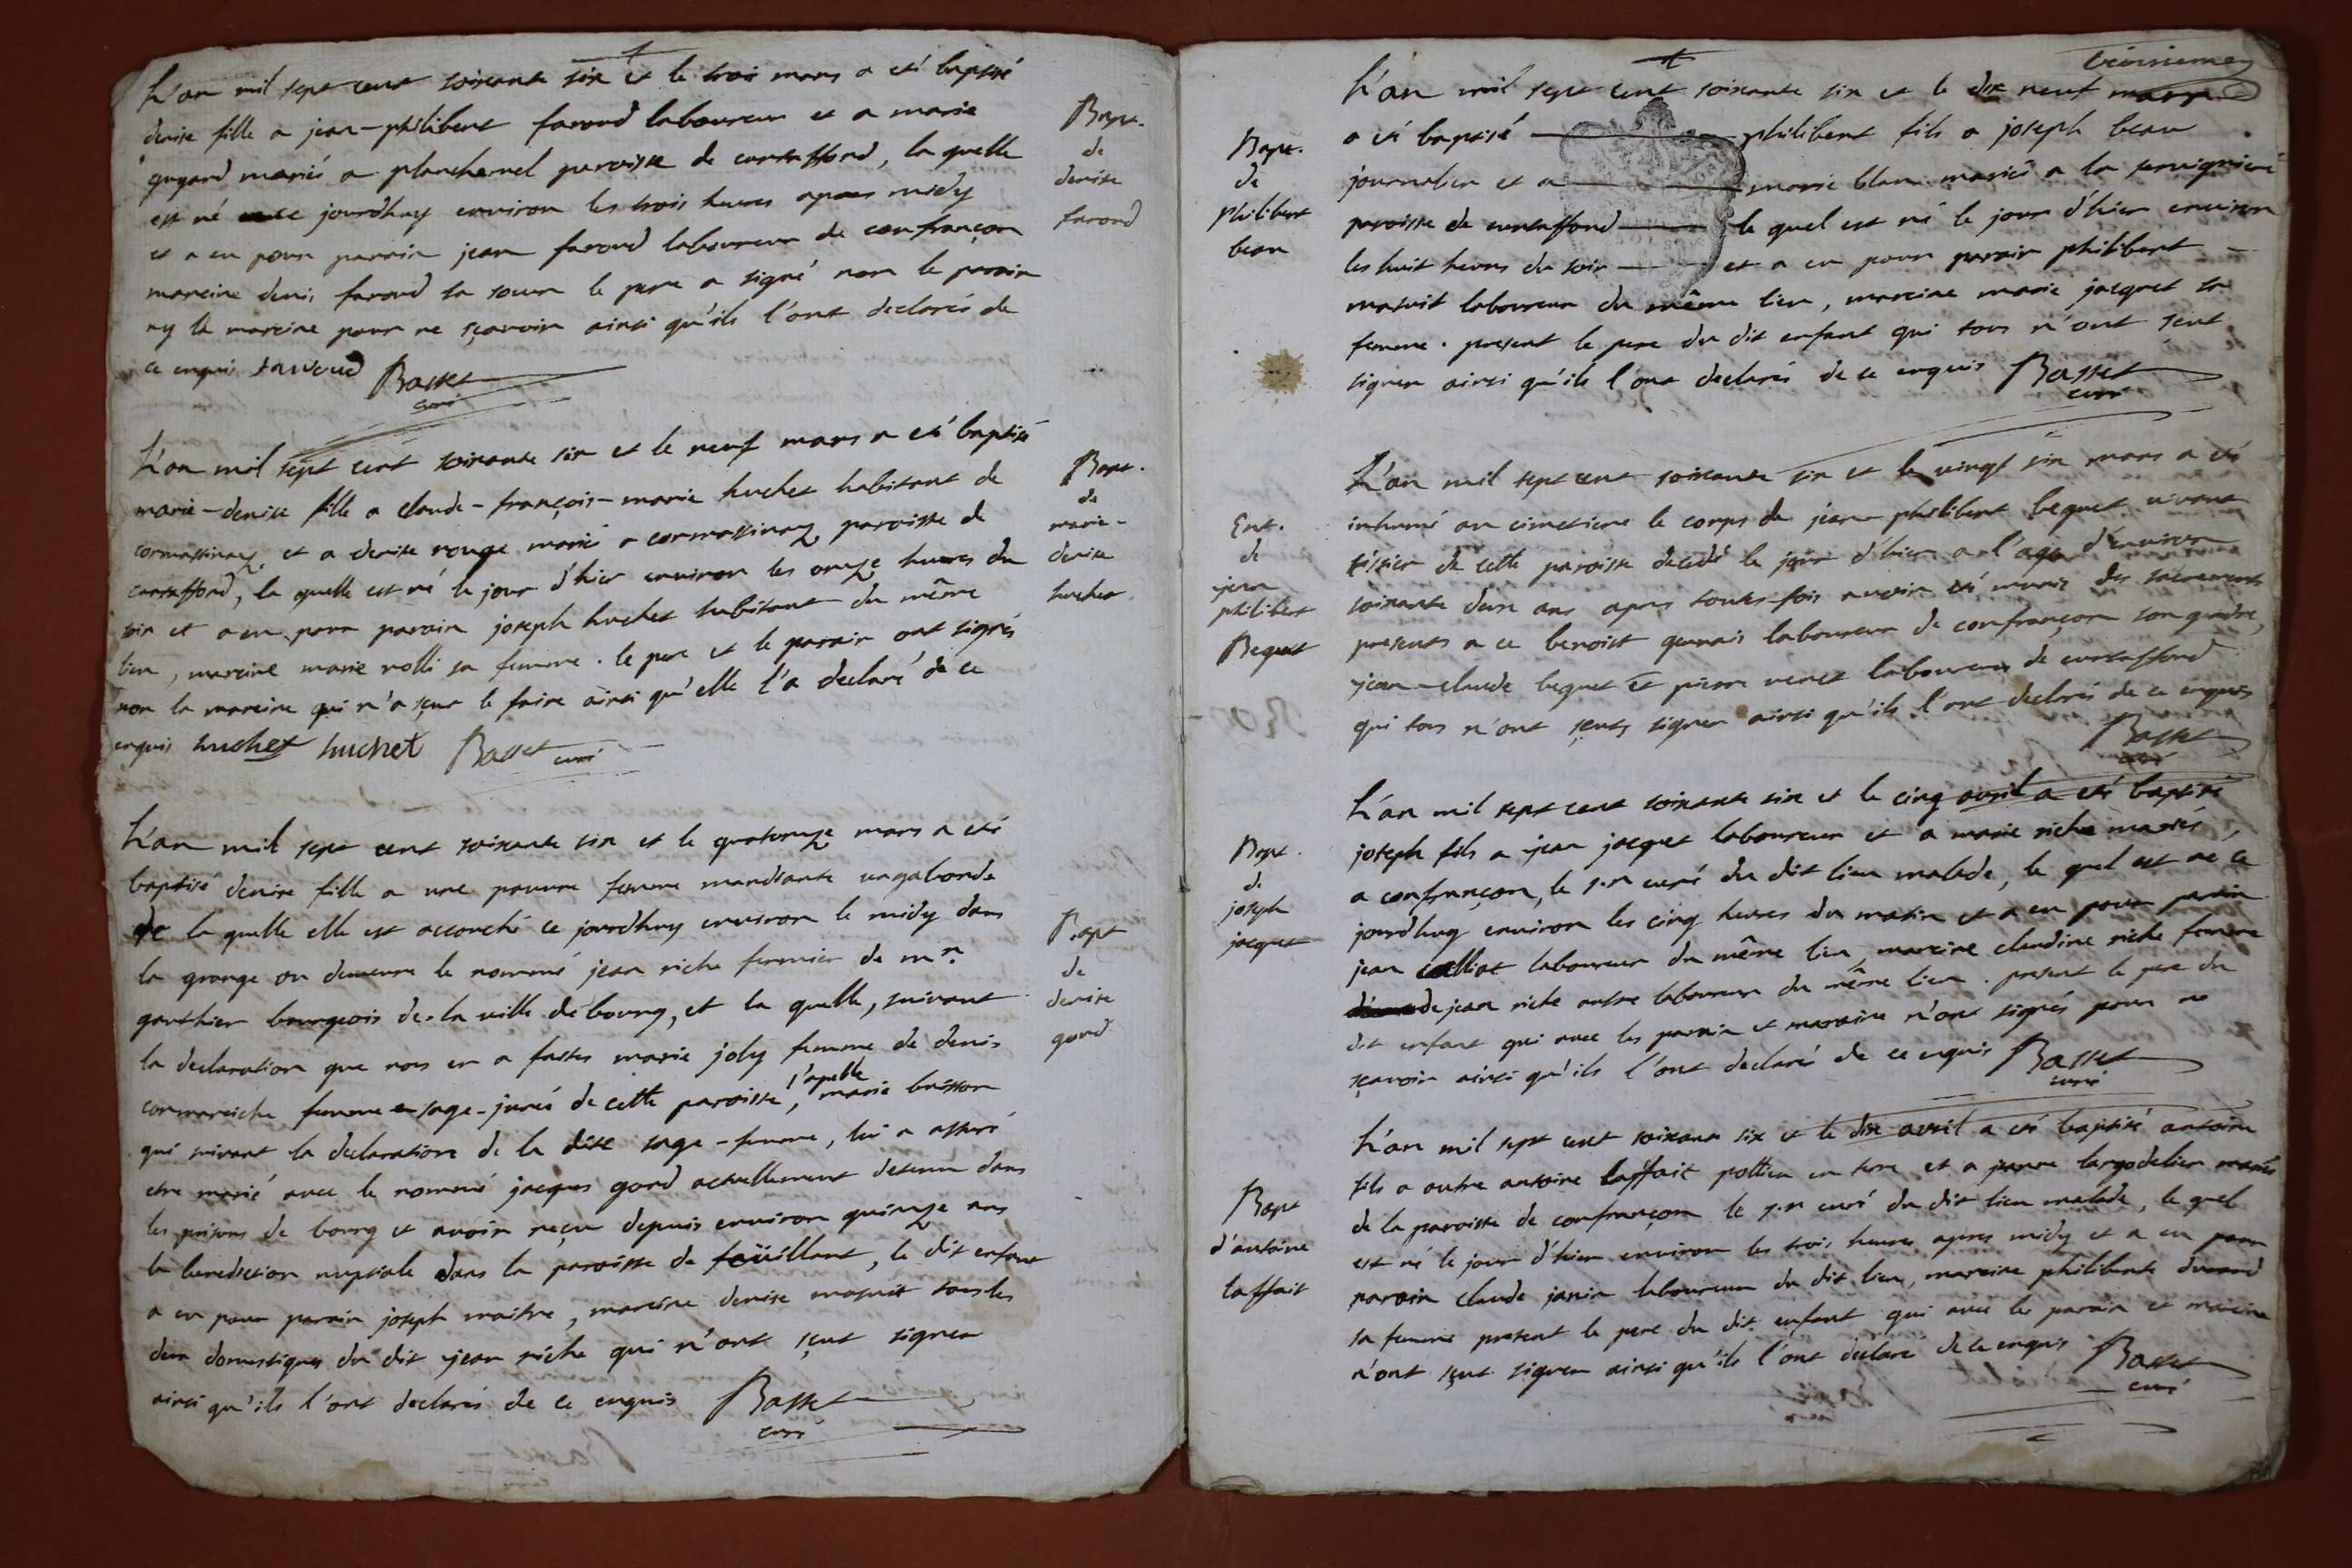 L'an mil sept cent soixante six et le trois mars a eté baptisé
denise fille a jean-philibert favoud laboureur et a marie
guyard mariés a planchervel paroisse de curtaffond, la quelle
est né ce jourdhuy environ les trois heures apres midy
et a eu pour parain jean favoud laboureur de confrançon
mareine denis favoud sa soeur le pere a signé non le parain
ny la mareine pour ne sçavoir ainsi qu'ils l'ont declarés de
ce enquis favoud Basset
curé
Bapt.
de
denise
favoud
L'an mil sept cent soixante six et le neuf mars a eté baptisé
marie-denise fille a claude-françois-marie huchet habitant de
cormassinaz, et a denise rouge mariés a cormassinaz paroisse de
curtaffond, la quelle est né le jour d'hier environ les onze heures du
soir et a eu pour parain joseph huchet habitant du même
lieu, mareine marie rolli sa femme. le pere et le parain ont signés
non la mareine qui n'a sçeu le faire ainsi qu'elle l'a declaré de ce
enquis huchet huchet Basset curé
Bapt.
de
marie-
denise
huchet
L'an mil sept cent soixante six et le quatorze mars a eté
baptisé denise fille a une pauvre femme mandiante vagabonde
de la quelle elle est accouché ce jourdhuy environ le midy dans
la grange ou demeure le nommé jean riche fermier de mr.
gauthier bourgeois de la ville de bourg, et la quelle, suivant
la declaration que nous en a faites marie joly femme de denis
cormareiche femme sage-jurés de cette paroisse, s'apelle marie buisson
qui suivant la declaration de la dite sage-femme, lui a assuré
etre marié avec le nommé jacques gord actuellement detenu dans
les prisons de bourg et avoir reçu depuis environ quinze ans
la benediction nuptiale dans la paroisse de foüillant, le dit enfant
a eu pour parain joseph maitre, mareine denise masuit tous les
deux domestiques du dit jean riche qui n'ont sçut signer
ainsi qu'ils l'ont declarés de ce enquis Basset
curé
Bapt
de
denise
gord
troisieme
L'an mil sept cent soixante six et le dix neuf mars
a eté baptisé philibert fils a joseph beau
journalier et a marie blan mariés a la
paroisse de curtaffond le quel est né le jour d'hier environ
les huit heures du soir et a eu pour parain philibert
masuit laboureur du même lieu, mareine marie jacquet sa
femme. present le pere du dit enfant qui tous n'ont sçut
signer ainsi qu'ils l'ont declarés de ce enquis Basset
curé
Bapt.
de
philibert
beau
L'an mil sept cent soixante six et le vingt six mars a eté
inhumé au cimetiere le corps de jean-philibert bequet vivant
tissier de cette paroisse decedé le jour d'hier a l'age d'environ
soixante deux ans apres toutes-fois avoir eté munis des sacrements
presents a ce benoist quinais laboureur de confrançon son gendre,
jean-claude bequet et pierre venet laboureurs de curtaffond
qui tous n'ont sçuts signer ainsi qu'ils l'ont declarés de ce enquis
Basset
curé
Ent.
de
jean
philibert
Bequet
L'an mil sept cent soixante six et le cinq avril a eté baptisé
joseph fils a jean jacquet laboureur et a marie riche mariés,
a confrançon, le s.r curé du dit lieu malade, le quel est né ce
jourdhuy environ les cinq heures du matin et a eu pour parain
jean colliat laboureur du même lieu, mareine claudine riche femme
de jean riche autre laboureur du même lieu. present le pere du
dit enfant qui avec les parain et mareine n'ont signés pour ne
sçavoir ainsi qu'ils l'ont declarés de ce enquis Basset
curé
Bapt.
de
joseph
jacquet
L'an mil sept cent soixante six et le dix avril a eté baptisé antoine
fils a autre antoine laffait pottier en terre et a jeanne largodelier mariés
de la paroisse de confrançon le s.r curé du dit lieu malade, le quel
est né le jour d'hier environ les trois heures apres midy et a eu pour
parain claude janin laboureur du dit lieu, mareine philiberte durand
sa femme present le pere du dit enfant qui avec les parain et mareine
n'ont sçut signer ainsi qu'ils l'ont declaré de ce enquis Basset
curé
Bapt
d'antoine
laffait